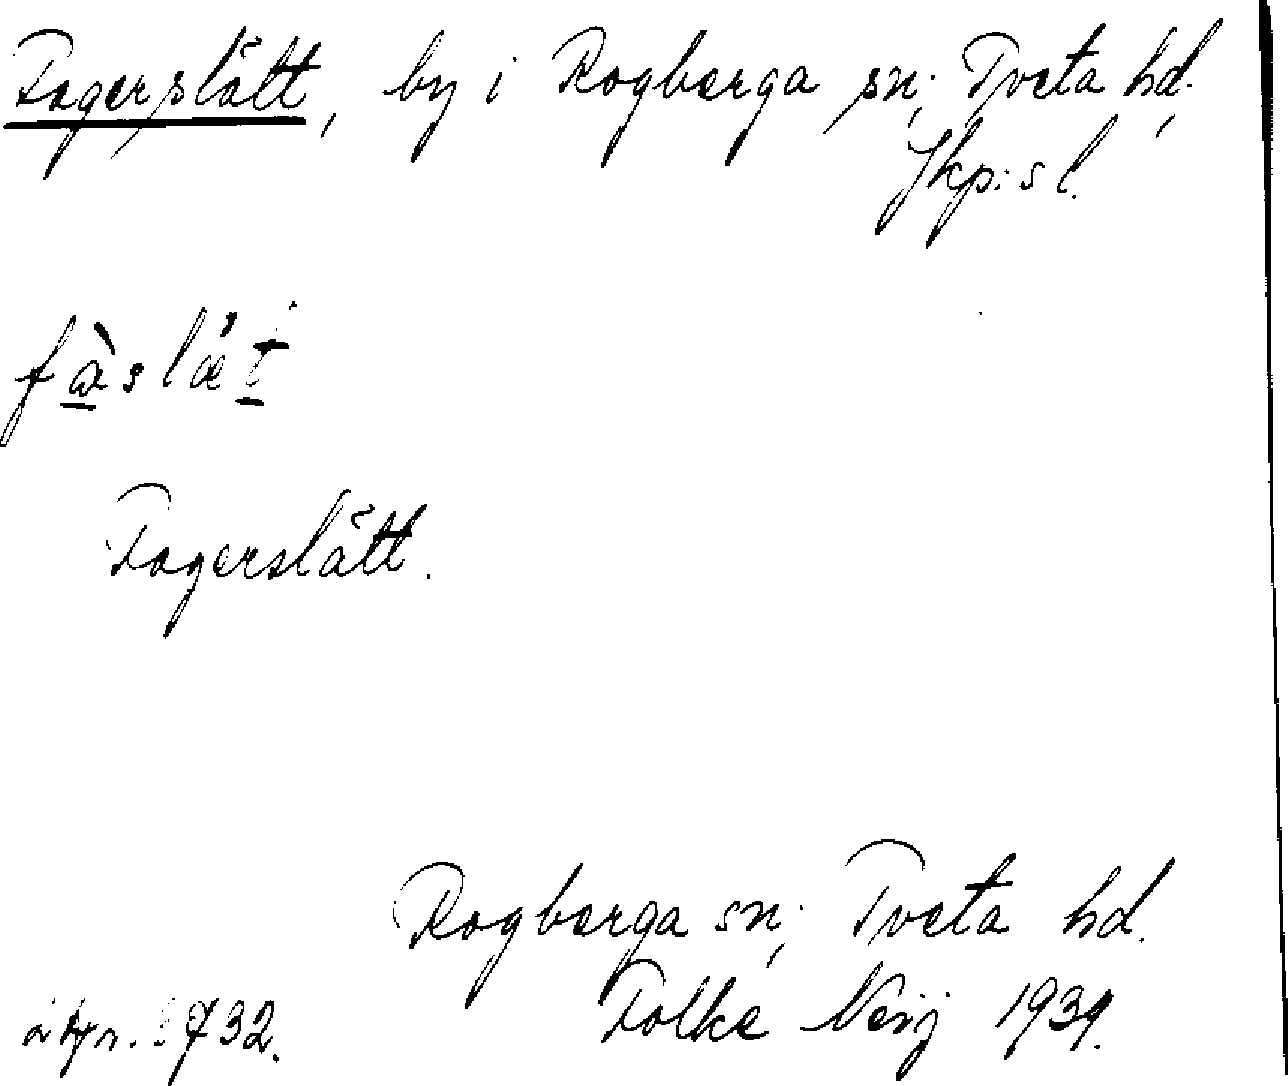 Fagerslätt, by i Rogberga sn; Tveta hd.,
Jkp:s l.
fàslǽt
Fagerslätt.
Rogberga sn; Tveta hd.
Folke Neij 1939.
732.